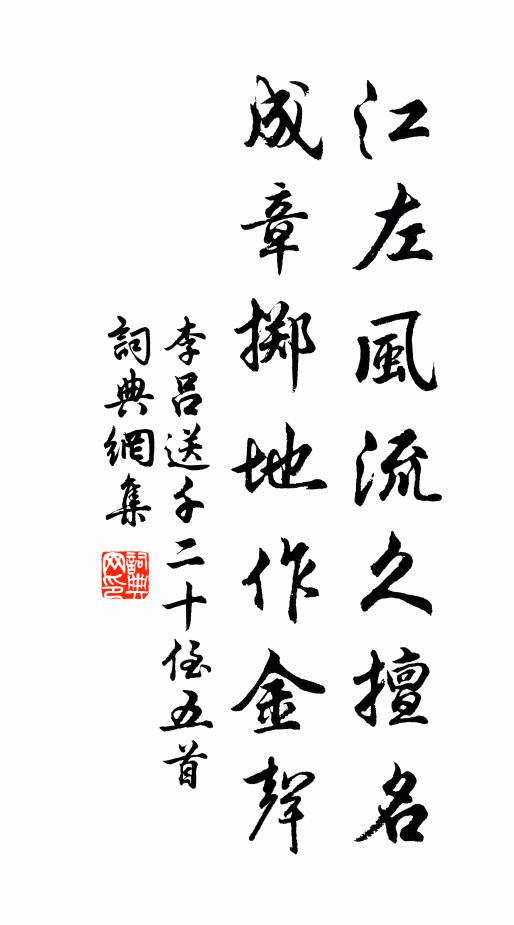 江左風流久擅名
成章擲地作金聲
李呂送千二十侄五首
詞典網集
詞典網印